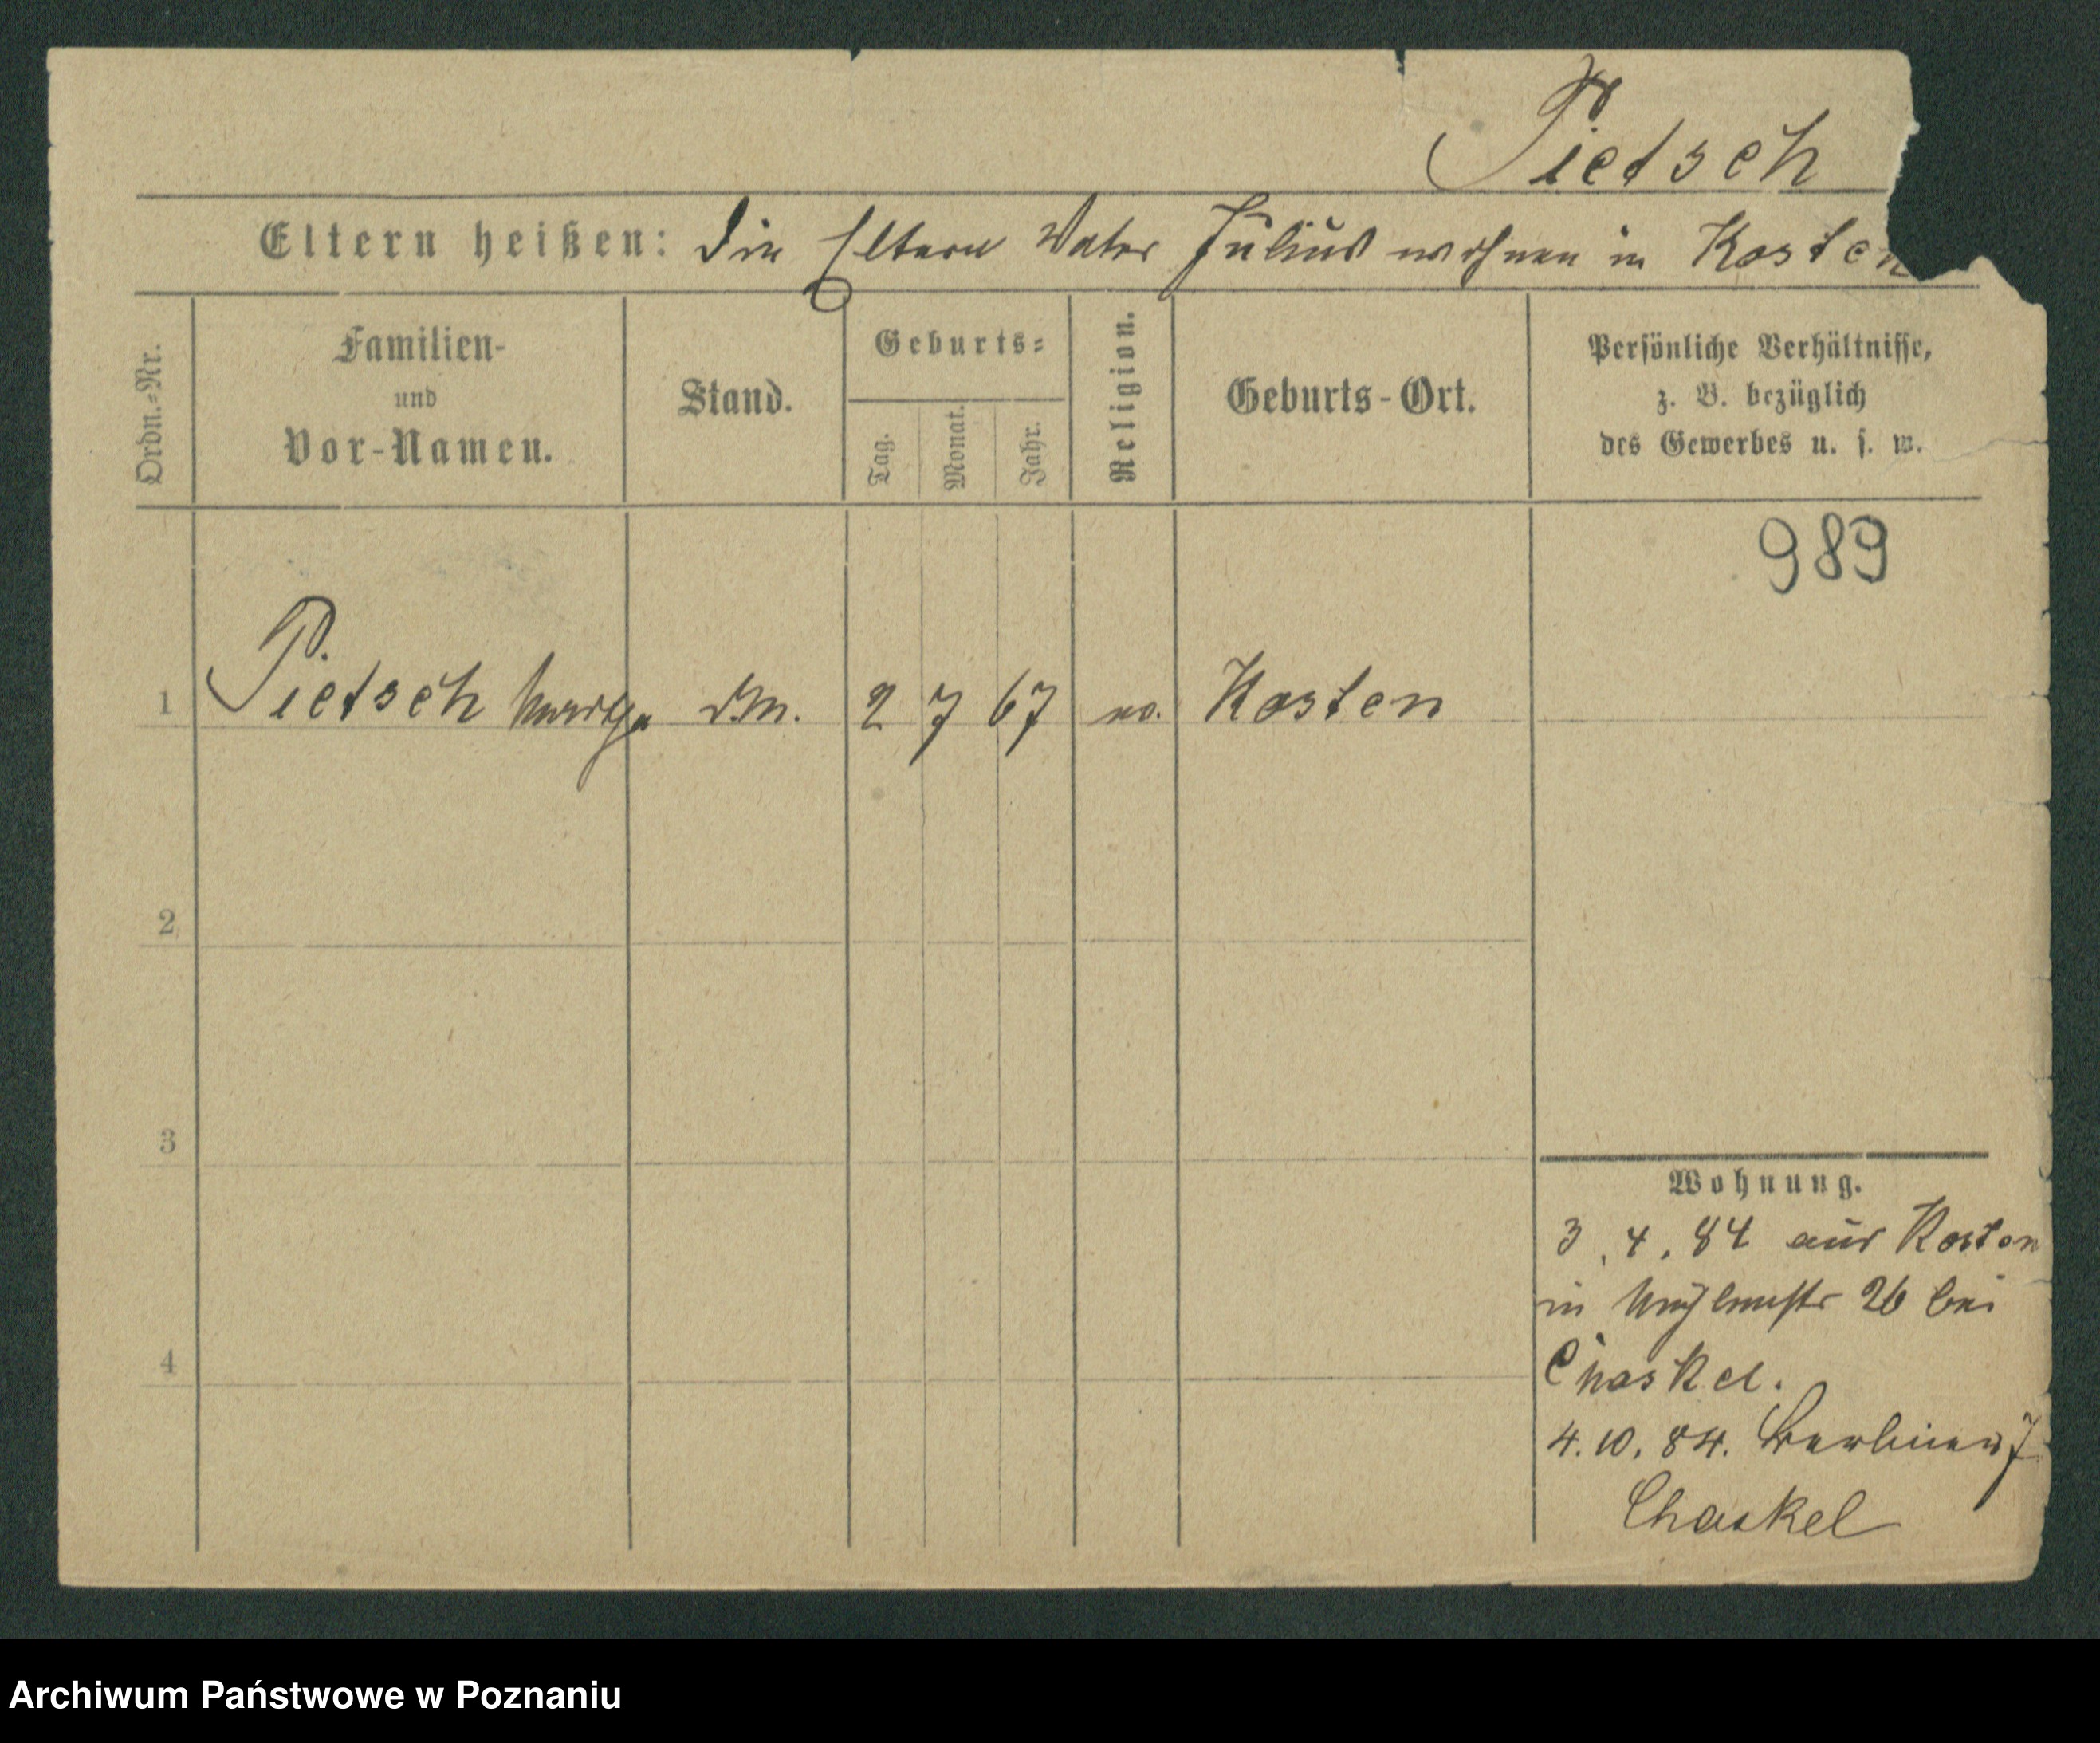 Pietsch
Eltern heißen: Die Eltern Vater Julius wohnen in Kosten
Ordn.-Nr.
Familien-
und
Vor-Namen.
Stand.
Geburts-
Tag.
Monat.
Jahr.
Religion.
Geburts-Ort.
Persönliche Verhältnisse,
z. B. bezüglich
des Gewerbes u. s. w.
989
1 Pietsch 2 7 67 Kosten
2
3
4
Wohnung.
3.4.84 aus Kosten
in 26 bei
Chaskel.
4.10.84. 7
Chaskel
Archiwum Państwowe w Poznaniu